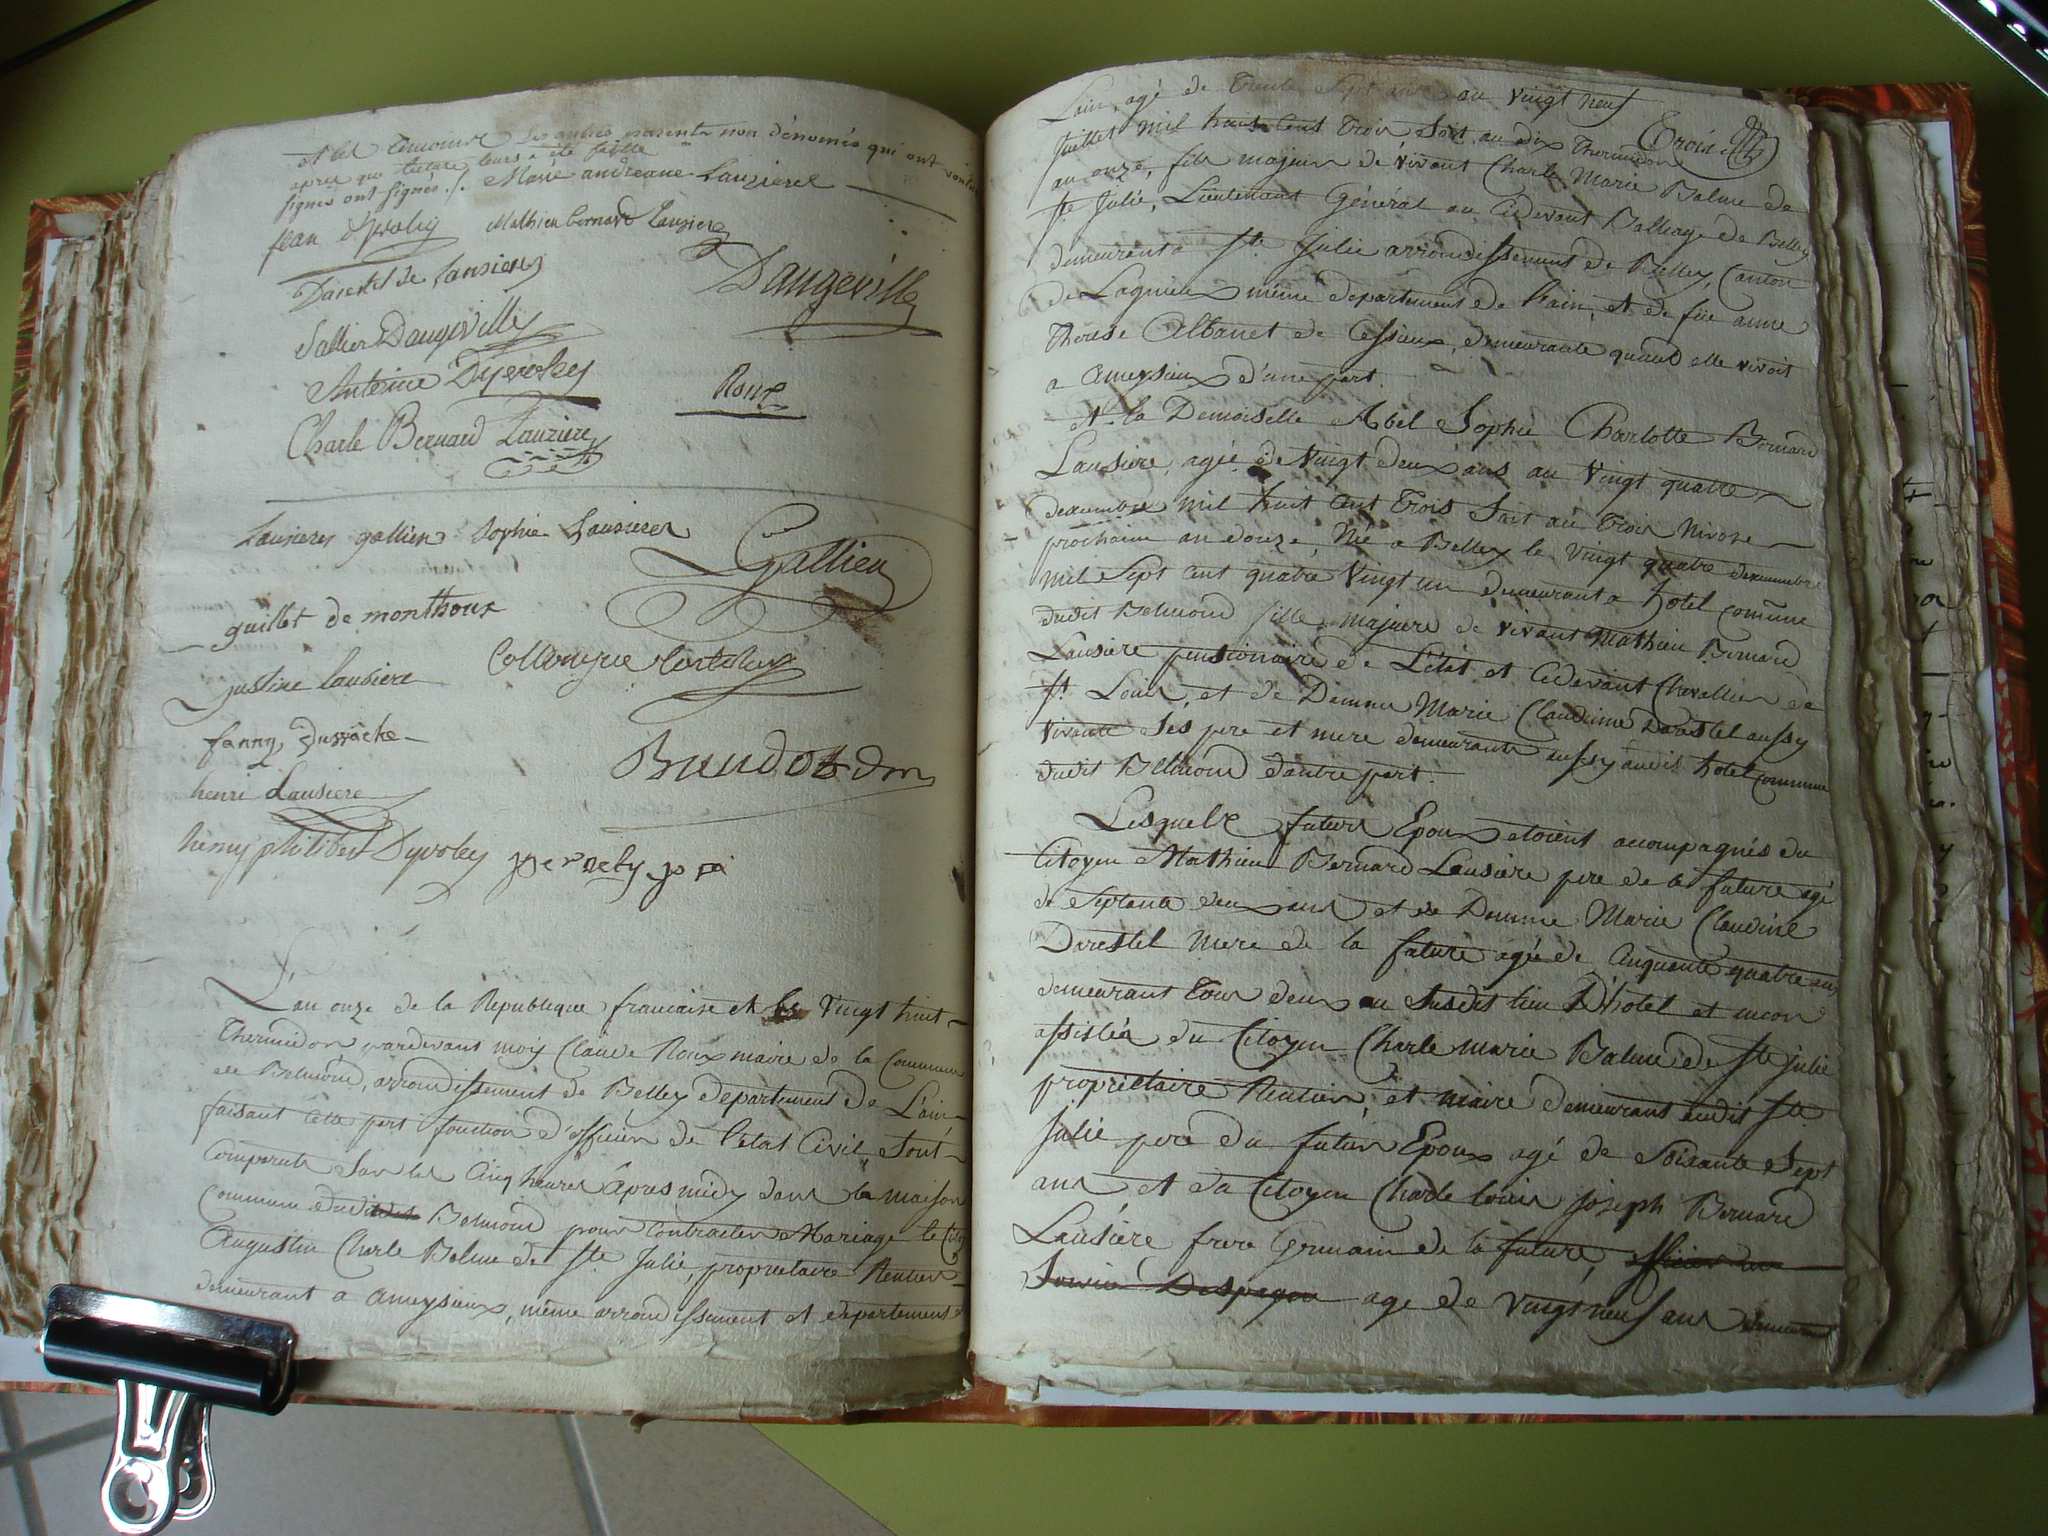 et les temoins Les autres parents non dénomés qui ont voulu
apres que lecture leurs a été faitte
signer ont signés ./. Marie andréane Lauzierel
jean dyvoley Mathieu bernard Lauziere
Darestel de lausiere
Daugeville
Sallier Daugeville
Antoine Dyvoley
Roux
Charle Bernard Lauziere
Lausieres gallien Sophie Lausieres
Gallien
guillet de monthoux
Collonge
justine lausiere
fanny
henri Lausiere
henry philibert Dyvoley
L'an onze de la Republique francaise et le Vingt huit
Thermidor pardevant moy Claude Roux maire de la Commune
de Belmond, arrondissement de Belley departement de L'ain
faisant cette part fonction d'officier de l'etat Civil Sont
Comparute Sur les Cinq heures âpres midy dans la maison
Commune dudit Belmond pour Contracter Mariage le Cit
Augustin Charle Balme de Ste Julié, propriétaire Rentier
demeurant a ameysieux, même arrondissement et departement d
Lain, agé de trente Sept ans au Vingt neuf
Juillet mil huit Cent Trois Soit au dix Thermidor
Trois
an onze, fils majeur de vivant Charle Marie Balme de
Ste Julié, Lieutenant Général au Cidevant Balliage de Belley
demeurant a Ste Julie arrondissement de Belley, Canton
de Lagnieux même departement de Lain, et de füe anne
Therese Albanet de Cessieux, demeurante quand elle vivoit
a ameysieux d'une part.
Et la Demoiselle Abel Sophie Charlotte Bernard
Lausiere, agée de Vingt deux ans au Vingt quatre
decembre mil huit Cent Trois Soit au Trois Nivose
prochain an douze, Née a Belley le Vingt quatre decembre
mil Sept Cent quatre Vingt un demeurant a hotel comune
dudit Belmond fille majeure de vivant Mathieu Bernard
Lausiere pensionaire de L'état et Cidevant Chevallier de
St Louis, et de Demme Marie Claudine Darestel aussy
vivante Ses pere et mere demeurants aussy audit hotel commune
dudit Belmond dautre part.
Lesquels futurs Epoux etoient accompagnés du
Citoyen Mathieu Bernard Lausiere pere de la future agé
de Septante deux ans et de Demme Marie Claudine
Darestel Mere de la future agée de Cinquante quatre ans
demeurant tous deux au Susdit lieu D'hotel et encor
assistés du Citoyen Charle marie Balme de Ste julie
propriétaire Rentier, et maire demeurant audit Ste
Julié pere du futur Epoux agé de Soixante Sept
ans et du Citoyen Charle louis joseph Bernard
Lausiére frere Germain de la future, officier au
Service Despagne age de vingt neuf ans demeurant